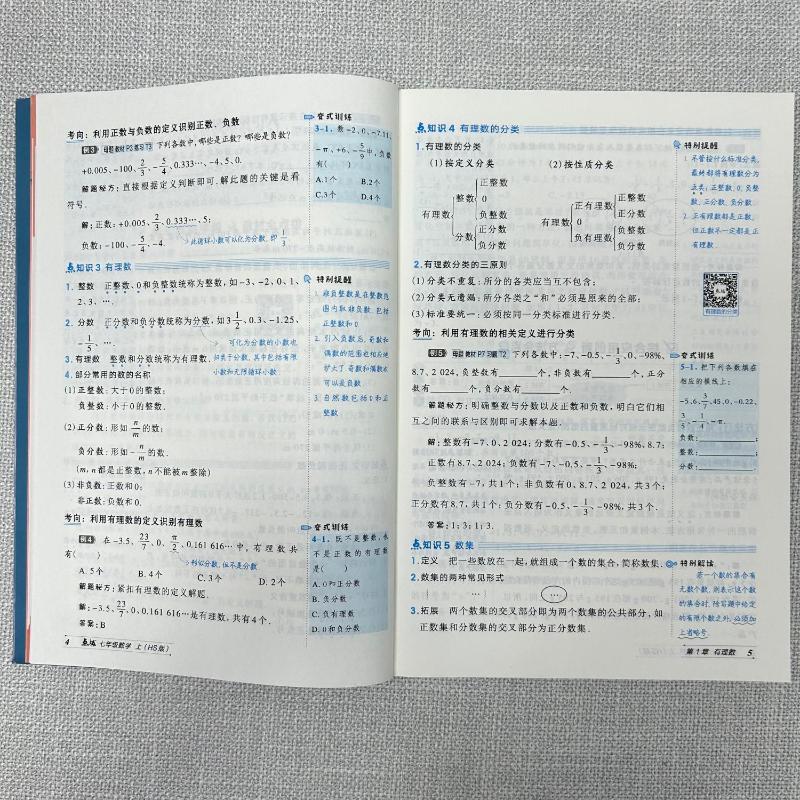 考向：利用正数与负数的定义识别正数、负数
例3 母题 教材P3练习T3 下列各数中,哪些是正数?哪些是负数?
+0.005,-100, 2/3, -5/4, 0.333…,-4,5,0.
解题秘方：直接根据定义判断即可.解此题的关键是看
符号.
解：正数：+0.005, 2/3, 0.333…,5;
负数：-100,-5/4,-4.
此循环小数可以化为分数,即 1/3
变式训练
3-1. 数-2,0,-7.11,
-π,+6,-5/9中,负数
有( )
A.1个 B.2个
C.3个 D.4个
点知识3 有理数
1. 整数 正整数、0和负整数统称为整数,如-3、-2、0、1、
2、3、….
2. 分数 正分数和负分数统称为分数,如3 1/2、0.3、-1.25、
-1/5、….
可化为分数的小数也
3. 有理数 整数和分数统称为有理数.
归类于分数,其中包括有限
小数和无限循环小数
4. 部分常用的数的名称
(1)正整数：大于0的整数;
负整数：小于0的整数.
(2)正分数：形如 n/m 的数;
负分数：形如 -n/m 的数.
(m,n都是正整数,n不能被m整除)
(3)非负数：正数和0;
非正数：负数和0.
特别提醒
1. 非负整数是在整数
范围内取非负数,包括
正整数和0
2. 引入负数后,奇数和
偶数的范围也相应地
扩大了,奇数和偶数也
可以是负数
3. 自然数包括0和正
整数
考向：利用有理数的定义识别有理数
例4 在-3.5, 23/7, 0, π/2, 0.161 616…中,有理数共
有( )
类似分数,但不是分数
A. 5个 B. 4个 C. 3个 D. 2个
解题秘方：紧扣有理数的定义解题.
解：-3.5, 23/7, 0, 0.161 616…是有理数,共有4个.
答案：B
变式训练
4-1. 既不是整数,也
不是正数的有理数
是( )
A.0和正分数
B.负分数
C.负有理数
D.0和负分数
4 点拨 七年级数学 上(HS版)
点知识4 有理数的分类
1.有理数的分类
(1)按定义分类 (2)按性质分类
有理数 整数 正整数 0 负整数 分数 正分数 负分数
有理数 正有理数 正整数 正分数 0 负有理数 负整数 负分数
2.有理数分类的三原则
(1)分类不重复：所分的各类应当互不包含;
(2)分类无遗漏：所分各类之“和”必须是原来的全部;
(3)标准要统一：必须按同一分类标准进行分类.
特别提醒
1. 不管按什么标准分类,
最终都将有理数分为
五类：正整数、0、负整
数、正分数、负分数.
2. 正有理数都是正数,
但正数不一定都是正
有理数.
有理数的分类
考向：利用有理数的相关定义进行分类
例5 母题 教材P7习题T2 下列各数中：-7,-0.5,-1/3,0,-98%,
8.7,2 024,负整数有 个,非负数有 个,正分
数有 个,负分数有 个.
解题秘方：明确整数与分数以及正数和负数,明白它们相
互之间的联系与区别即可求解本题.
解：整数有-7,0,2 024;分数有-0.5,-1/3,-98%,8.7;
正数有8.7,2 024;负数有-7,-0.5,-1/3,-98%.
负整数有-7,共1个;非负数有0,8.7,2 024,共3个;
正分数有8.7,共1个;负分数有-0.5,-1/3,-98%,共3个.
答案：1;3;1;3.
变式训练
5-1.把下列各数填在
相应的横线上：
-5,6,3/7,45,0,-0.22,
3/3,-1/4,-π.
负数： ;
整数： ;
分数： .
点知识5 数集
1.定义 把一些数放在一起,就组成一个数的集合,简称数集.
2.数集的两种常见形式
{ …} (…)
3.拓展 两个数集的交叉部分即为两个数集的公共部分,如
正数集和分数集的交叉部分为正分数集.
特别解读
若一个数的集合有
无数个数,则表示这个数
的集合时,除写题中给定
的有限个数之外,必须加
上省略号.
第1章 有理数 5